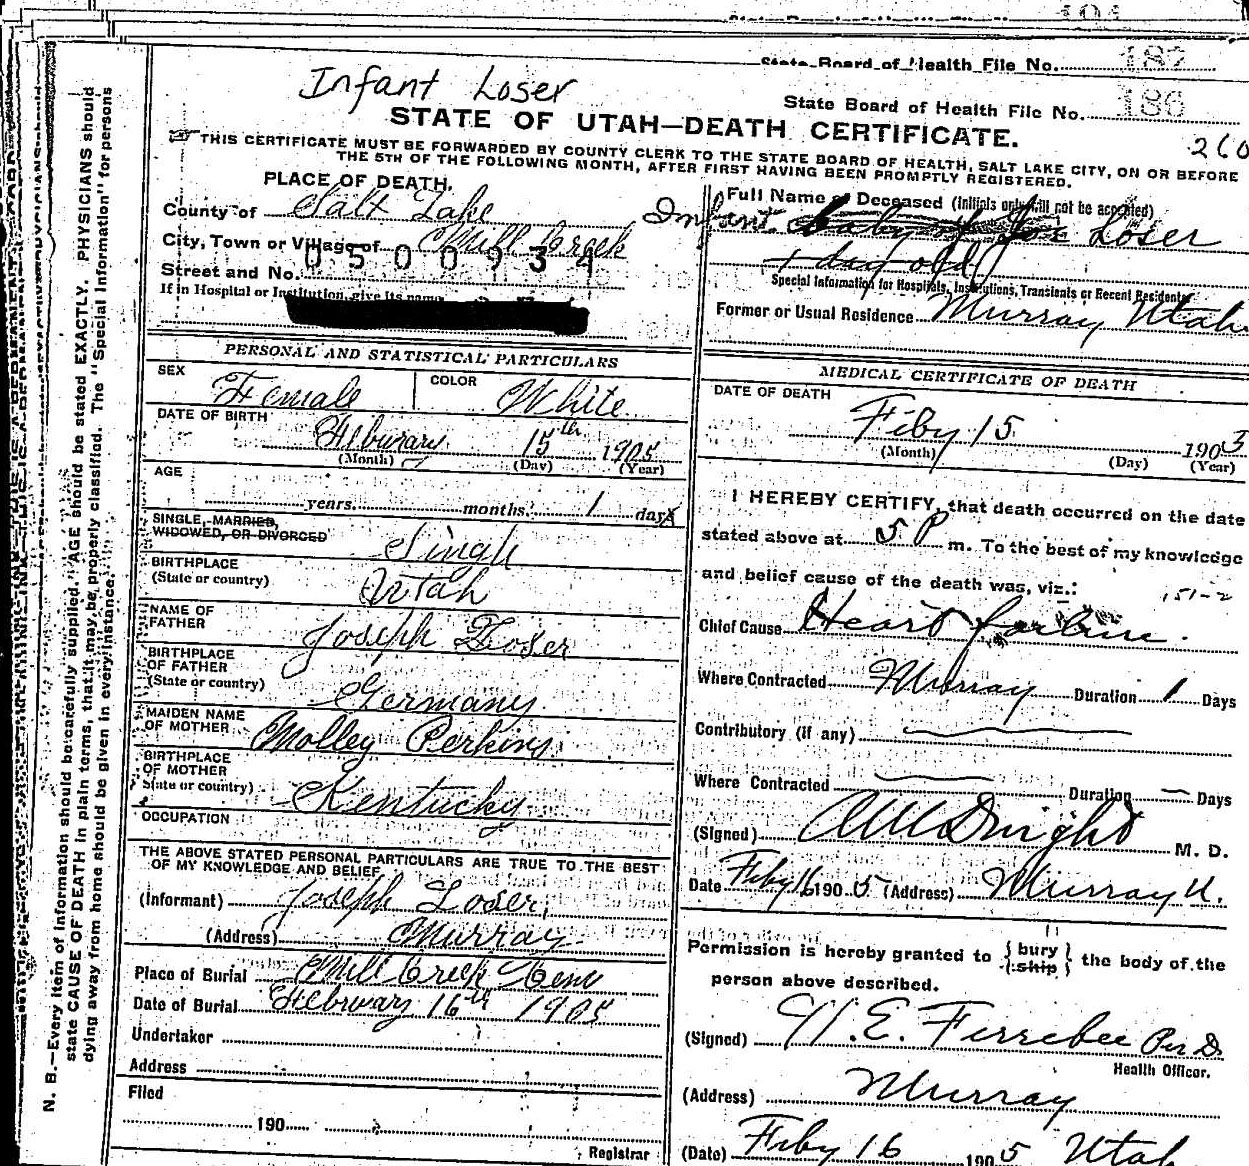 State Board of Health File No. 187
Infant Loser
State Board of Health File No. 186
STATE OF UTAH—DEATH CERTIFICATE.
260
THIS CERTIFICATE MUST BE FORWARDED BY COUNTY CLERK TO THE STATE BOARD OF HEALTH, SALT LAKE CITY, ON OR BEFORE
THE 5TH OF THE FOLLOWING MONTH, AFTER FIRST HAVING BEEN PROMPTLY REGISTERED.
PLACE OF DEATH.
County of Salt Lake
City, Town or Village of Mill Creek
0500934
Street and No.
If in Hospital or Institution, give its name
Full Name of Deceased (Initials only will not be accepted)
Infant Loser
1 day old
Special Information for Hospitals, Institutions, Transients or Recent Residents
Former or Usual Residence Murray Utah
PERSONAL AND STATISTICAL PARTICULARS
SEX Female COLOR White
DATE OF BIRTH February 15th 1905
(Month) (Day) (Year)
AGE
years. months. 1 days
SINGLE, MARRIED,
WIDOWED, OR DIVORCED Single
BIRTHPLACE
(State or country) Utah
NAME OF
FATHER Joseph Loser
BIRTHPLACE
OF FATHER
(State or country) Germany
MAIDEN NAME
OF MOTHER Molley Perkins
BIRTHPLACE
OF MOTHER
State or country) Kentucky
OCCUPATION
THE ABOVE STATED PERSONAL PARTICULARS ARE TRUE TO THE BEST
OF MY KNOWLEDGE AND BELIEF
(Informant) Joseph Loser
(Address) Murray
Place of Burial Mill Creek Cem
Date of Burial February 16th 1905
Undertaker
Address
Filed
190
Registrar
MEDICAL CERTIFICATE OF DEATH
DATE OF DEATH
Feby 15 1903
(Month) (Day) (Year)
I HEREBY CERTIFY, that death occurred on the date
stated above at 5 P m. To the best of my knowledge
and belief cause of the death was, viz.:
151-2
Chief Cause Heart failure.
Where Contracted Murray Duration 1 Days
Contributory (if any)
Where Contracted Duration — Days
(Signed) M. D.
Date Feby 16 1905 (Address) Murray U.
Permission is hereby granted to { bury / ship } the body of the
person above described.
(Signed) H.E. Ferrebee Per D.
Health Officer.
(Address) Murray
(Date) Feby 16 1905 Utah
N. B.—Every item of information should be carefully supplied. AGE should be stated EXACTLY. PHYSICIANS should
state CAUSE OF DEATH in plain terms, that it may be properly classified. The "Special Information" for persons
dying away from home should be given in every instance.